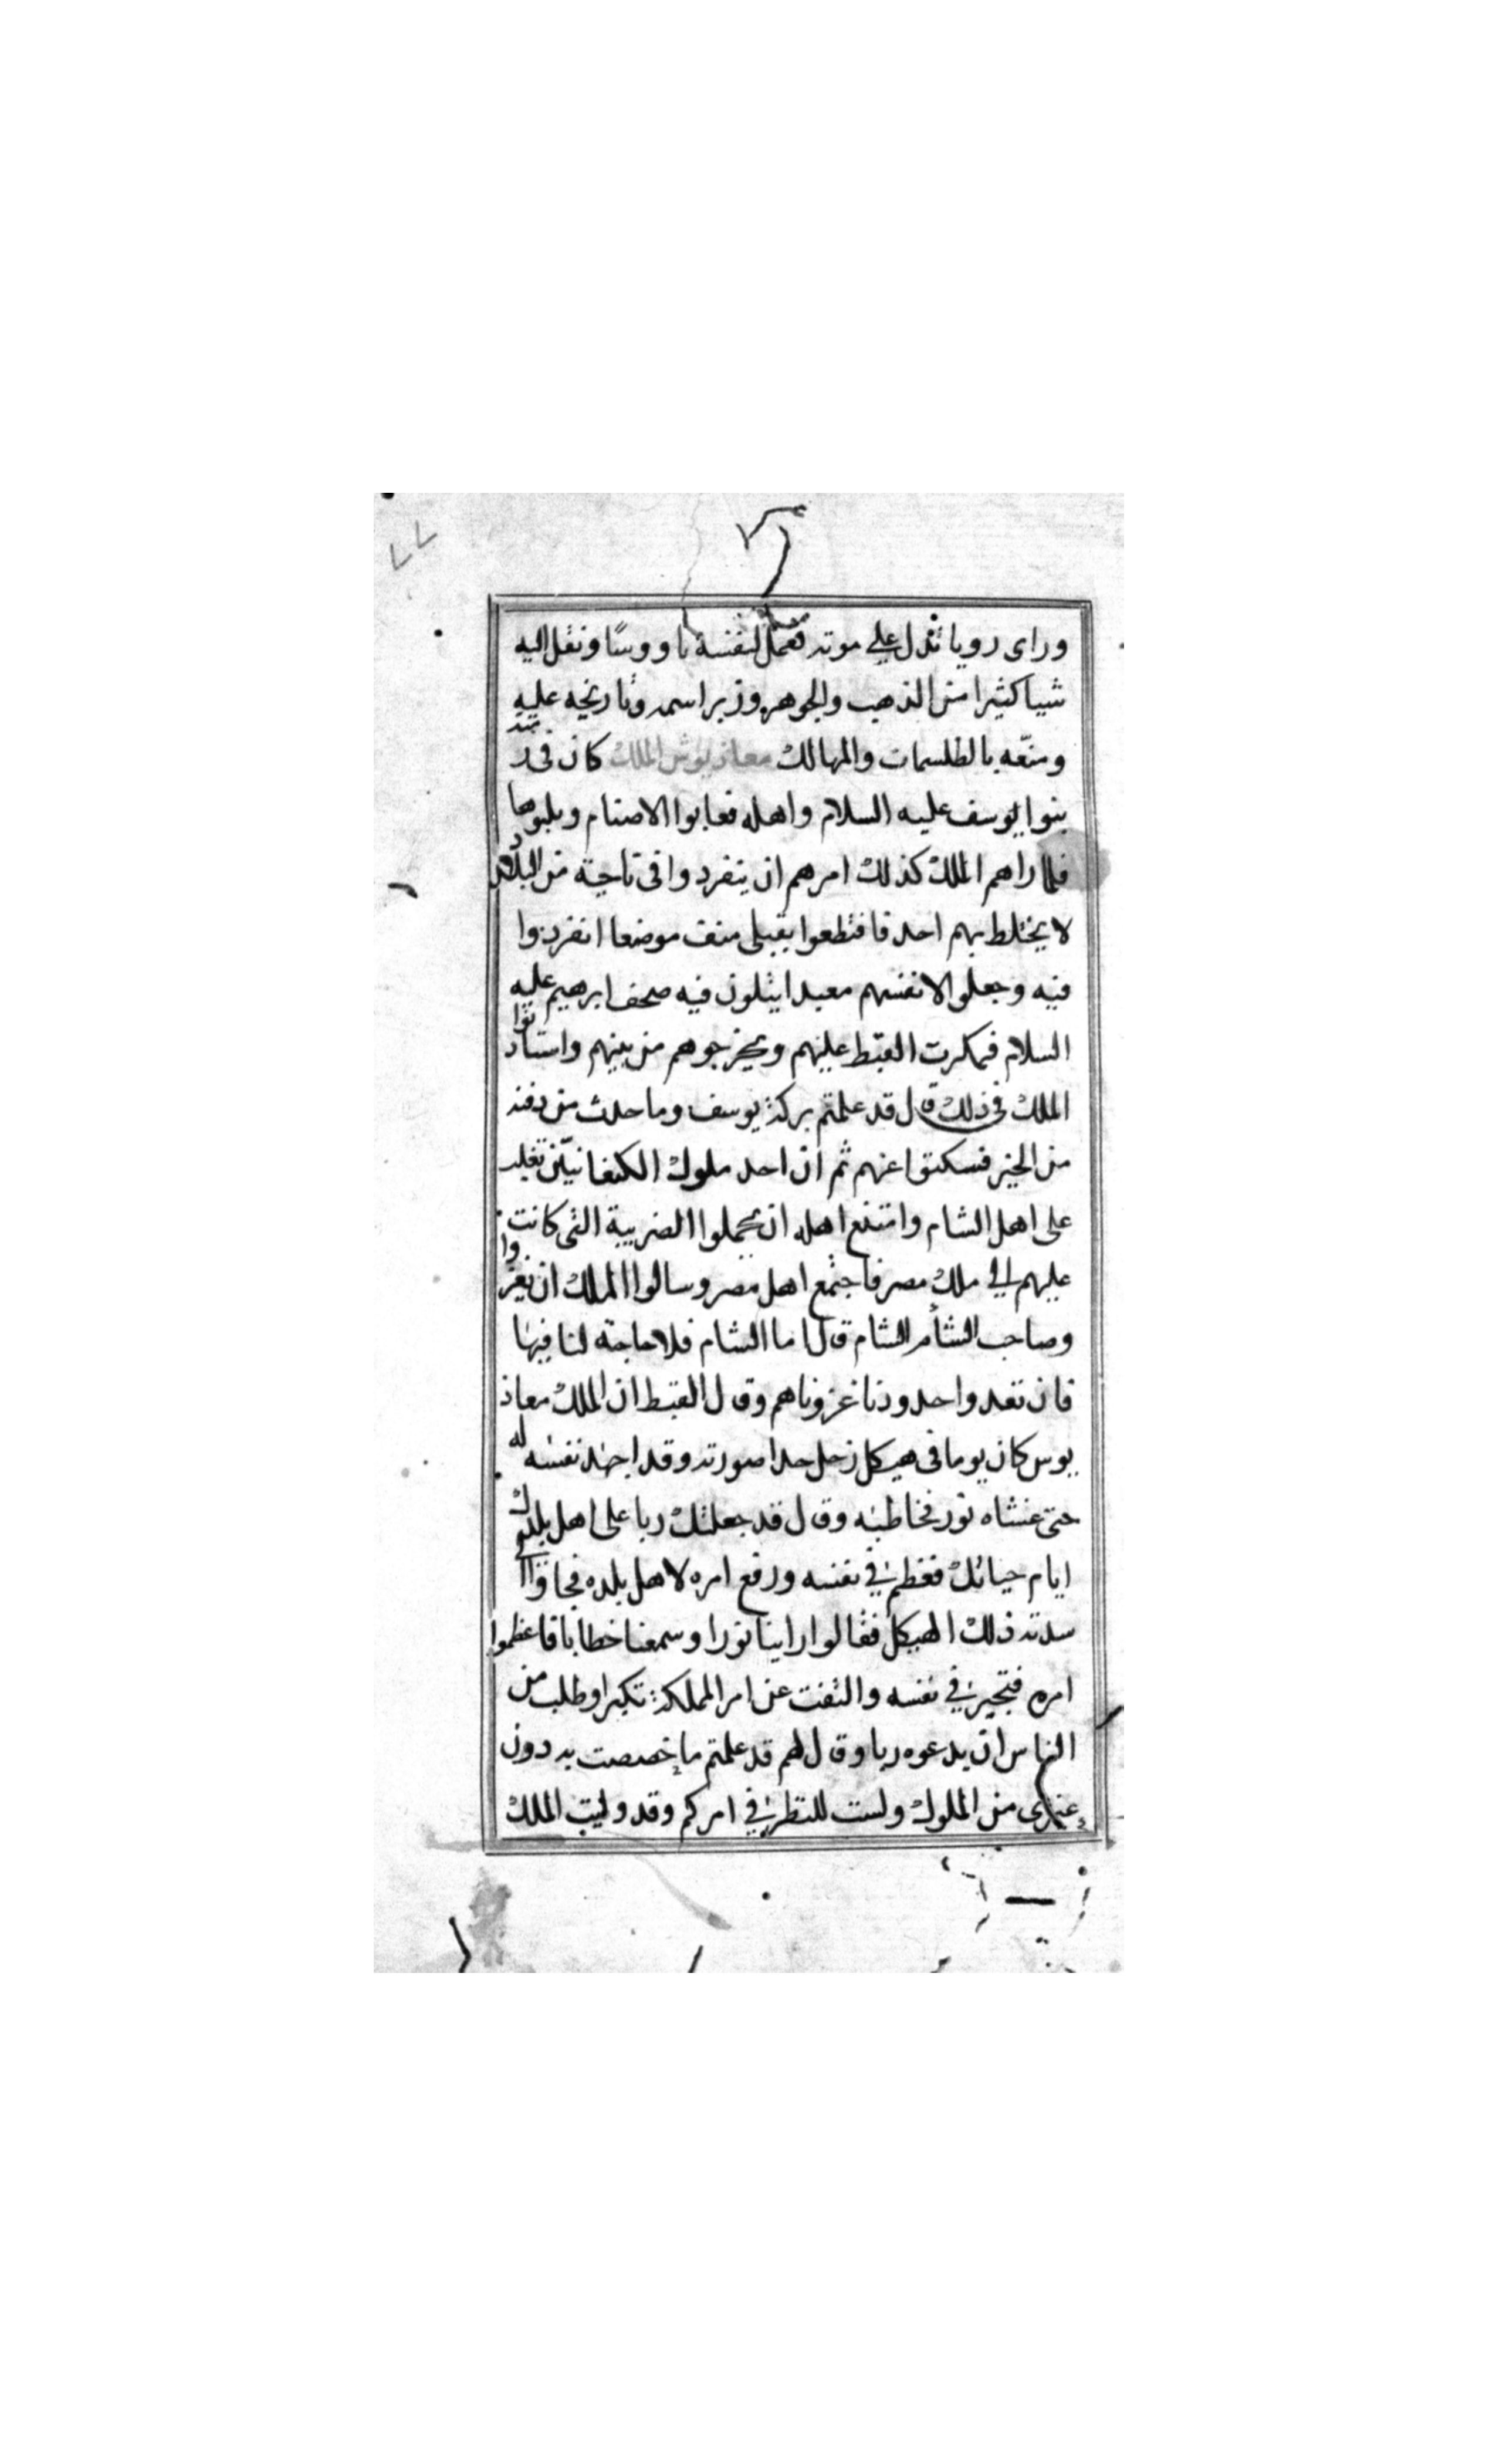 ٧٧
وراى رويا تدل على موته فعمل لنفسه ناووسًا ونقل اليه
شيا كثيرا من الذهب والجوهر وزبر اسمه وتاريخه عليه
ومنعه بالطلسمات والمهالك معاذيوش الملك كان في زمنه
بنوا يوسف عليه السلام واهله فعابوا الاصنام وبلبوها
فلما راهم الملك كذلك امرهم ان ينفردوا في ناحية من البلاد
لا يختلط بهم احد فاقتطعوا بقبلي منف موضعا انفردوا
فيه وجعلوا لانفسهم معبدا يتلون فيه صحف ابرهيم عليه
السلام فمكرت القبط عليهم ويخرجوهم من بينهم واستاذنوا
الملك في ذلك قال قد علمتم بركة يوسف وما حدث من دفنه
من الخير فسكتوا عنهم ثم ان احد ملوك الكنعانيّن تغلب
على اهل الشام وامتنع اهله ان يحملوا الضريبة التي كانت
عليهم الى ملك مصر فاجتمع اهل مصر وسالوا الملك ان يغزوا
وصاحب الشام الشام قال اما الشام فلا حاجة لنا فيها
فان تعدوا حدودنا غزوناهم وقال القبط ان الملك معاذ
يوس كان يوما في هيكل زحل حدا صورته وقد اجهد نفسه له
حتى غشاه نور فخاطبه وقال قد جعلتك ربا على اهل بلدك
ايام حياتك فعظم في نفسه ورفع امره لاهل بلده فجاوا الى
سدنة ذلك الهيكل فقالوا راينا نورا وسمعنا خطابا فاعظموا
امره فتجبر في نفسه والتفت عن امر المملكة تكبرا وطلب من
الناس ان يدعوه ربا وقال لهم قد علمتم ما خصصت به دون
غيري من الملوك ولست للنظر في امركم وقد وليت الملك